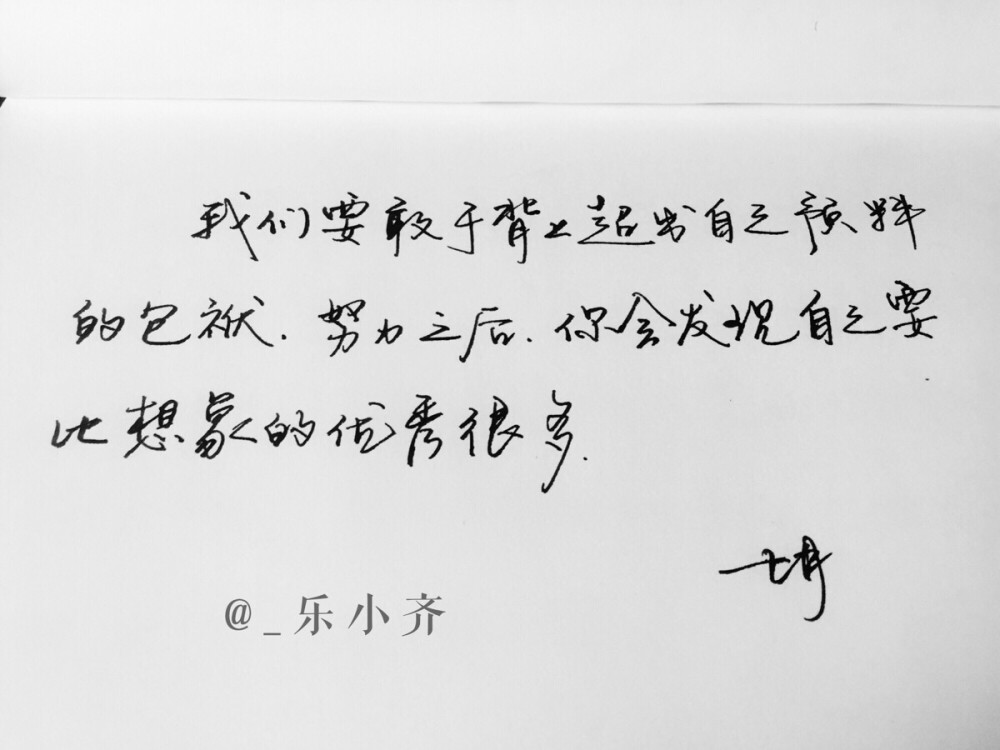 我们要敢于背上超出自己预料
的包袱.努力之后.你会发现自己要
比想象的优秀很多.
@_乐小齐